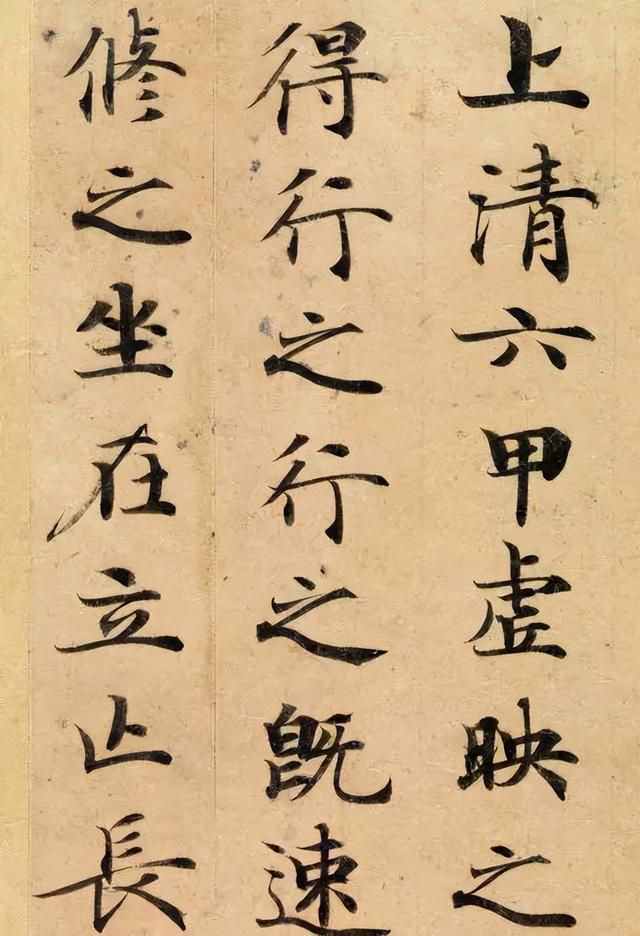 上清六甲虚映之
得行之行之既速
脩之坐在立止長